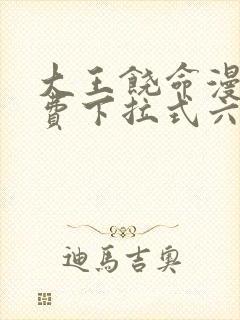 大王饶命漫
费下拉式六
迪馬吉奧